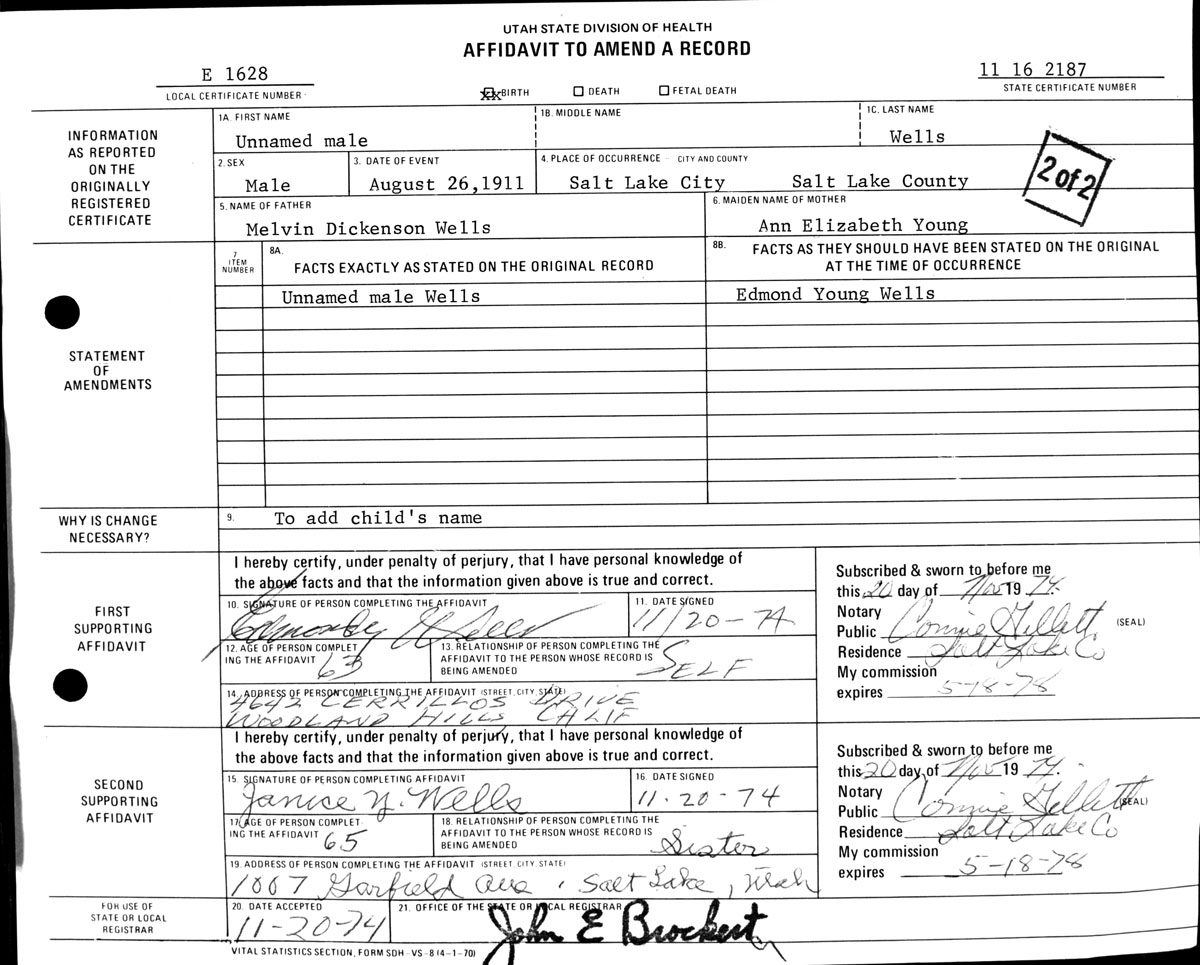 UTAH STATE DIVISION OF HEALTH
AFFIDAVIT TO AMEND A RECORD
E 1628
LOCAL CERTIFICATE NUMBER
XX BIRTH DEATH FETAL DEATH
11 16 2187
STATE CERTIFICATE NUMBER
INFORMATION AS REPORTED ON THE ORIGINALLY REGISTERED CERTIFICATE
1A. FIRST NAME 1B. MIDDLE NAME 1C. LAST NAME
Unnamed male Wells
2. SEX 3. DATE OF EVENT 4. PLACE OF OCCURRENCE - CITY AND COUNTY
Male August 26,1911 Salt Lake City Salt Lake County
2 of 2
5. NAME OF FATHER 6. MAIDEN NAME OF MOTHER
Melvin Dickenson Wells Ann Elizabeth Young
STATEMENT OF AMENDMENTS
7 ITEM NUMBER
8A. FACTS EXACTLY AS STATED ON THE ORIGINAL RECORD
8B. FACTS AS THEY SHOULD HAVE BEEN STATED ON THE ORIGINAL
AT THE TIME OF OCCURRENCE
Unnamed male Wells Edmond Young Wells
WHY IS CHANGE NECESSARY?
9. To add child's name
FIRST SUPPORTING AFFIDAVIT
I hereby certify, under penalty of perjury, that I have personal knowledge of
the above facts and that the information given above is true and correct.
10. SIGNATURE OF PERSON COMPLETING THE AFFIDAVIT 11. DATE SIGNED
Edmond y Wells 11/20-74
12. AGE OF PERSON COMPLET
ING THE AFFIDAVIT 63
13. RELATIONSHIP OF PERSON COMPLETING THE
AFFIDAVIT TO THE PERSON WHOSE RECORD IS
BEING AMENDED SELF
14. ADDRESS OF PERSON COMPLETING THE AFFIDAVIT (STREET, CITY, STATE)
4642 CERRILLOS DRIVE
WOODLAND HILLS, CALIF
Subscribed & sworn to before me
this 20 day of Nov 19 74.
Notary
Public Connie Gillett (SEAL)
Residence Salt Lake Co
My commission
expires 5-18-78
SECOND SUPPORTING AFFIDAVIT
I hereby certify, under penalty of perjury, that I have personal knowledge of
the above facts and that the information given above is true and correct.
15. SIGNATURE OF PERSON COMPLETING AFFIDAVIT 16. DATE SIGNED
Janice Y. Wells 11-20-74
17. AGE OF PERSON COMPLET-
ING THE AFFIDAVIT 65
18. RELATIONSHIP OF PERSON COMPLETING THE
AFFIDAVIT TO THE PERSON WHOSE RECORD IS
BEING AMENDED Sister
19. ADDRESS OF PERSON COMPLETING THE AFFIDAVIT (STREET, CITY, STATE)
1007 Garfield Ave, Salt Lake, Utah
Subscribed & sworn to before me
this 20 day of Nov 19 74.
Notary
Public Connie Gillett (SEAL)
Residence Salt Lake Co
My commission
expires 5-18-78
FOR USE OF STATE OR LOCAL REGISTRAR
20. DATE ACCEPTED 21. OFFICE OF THE STATE OR LOCAL REGISTRAR
11-20-74 John E Brockert
VITAL STATISTICS SECTION, FORM SDH-VS-8 (4-1-70)